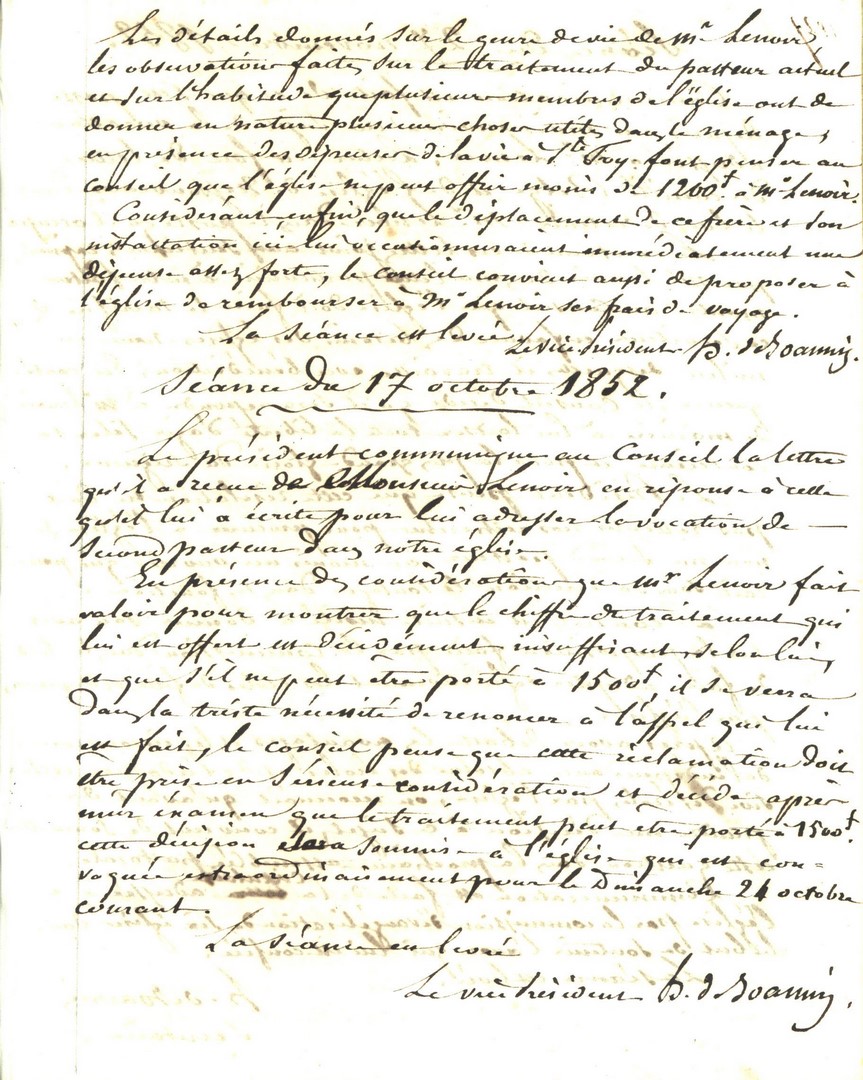 Les détails donnés sur le genre de vie de Mr Lenoir,
les observations faites sur le traitement du pasteur actuel
et sur l'habitude que plusieurs membres de l'église ont de
donner en nature plusieurs choses utiles dans le ménage,
en présence des dépenses de la vie à Ste Foy font penser au
conseil que l'église ne peut offrir moins de 1200f à Mr Lenoir.
Considérant enfin, que le déplacement de ce frère et son
installation ici lui occasionneraient immédiatement une
dépense assez forte, le conseil convient aussi de proposer à
l'église de rembourser à Mr Lenoir ses frais de voyage.
La séance est levée
Le vice Président H. de Joannis.
Séance du 17 octobre 1852.
Le président communique au Conseil la lettre
qu'il a reçue de Monsieur Lenoir en réponse à celle
qu'il lui a écrite pour lui adresser la vocation de —
second pasteur dans notre église.
En présence des considérations que Mr Lenoir fait
valoir pour montrer que le chiffre de traitement qui
lui est offert est décidément insuffisant, selon lui,
et que s'il ne peut être porté à 1500f, il se verra
dans la triste nécessité de renoncer à l'appel qui lui
est fait, le conseil pense que cette réclamation doit
être prise en sérieuse considération et décide après
mur éxamen que le traitement peut être porté à 1500f.
cette décision sera soumise à l'église qui est con=
voquée extraordinairement pour le Dimanche 24 octobre
courant.
La séance est levée
Le vice Président H. de Joannis.